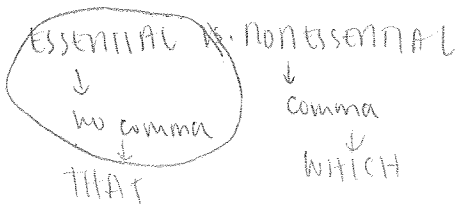 ESSENTIAL vs. NONESSENTIAL
↓ ↓
no comma comma
↓ ↓
THAT WHICH